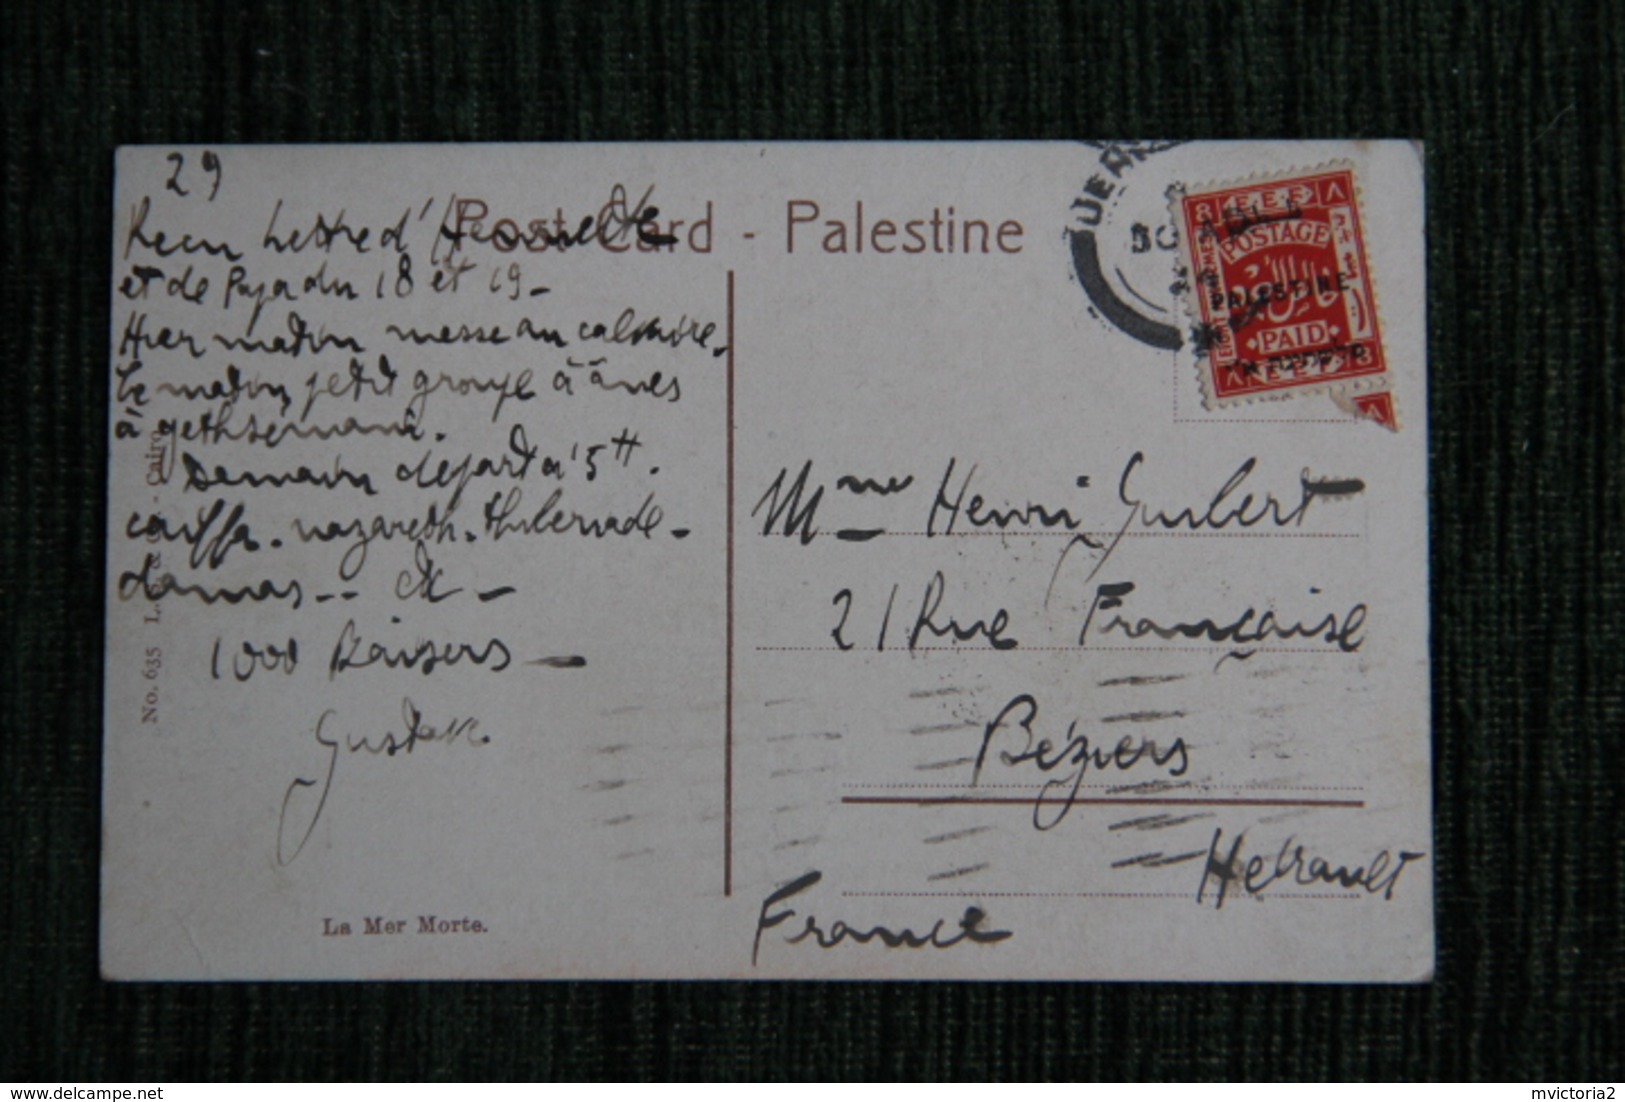 29
Reçu Lettre d'Henriette
et de Papa du 18 et 19 -
Hier matin messe au calvaire.
Ce matin, petit groupe à ânes
à gethsemani.
Demain départ à 5H.
caiffa. nazareth. thiberiade -
damas -- &c -
1000 Baisers -
Gustave.
La Mer Morte.
No. 635
Cairo
Post Card - Palestine
POSTAGE
PALESTINE
PAID
E.E.F.
Mme Henri Guibert
21 Rue Française
Béziers
Hérault
France
delcampe.net
mvictoria2